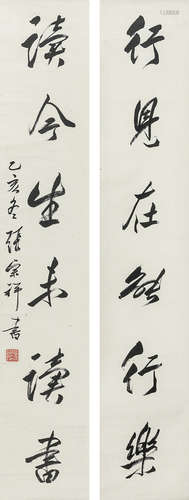 行見在能行樂
讀今生未讀書
乙亥冬張宗祥書